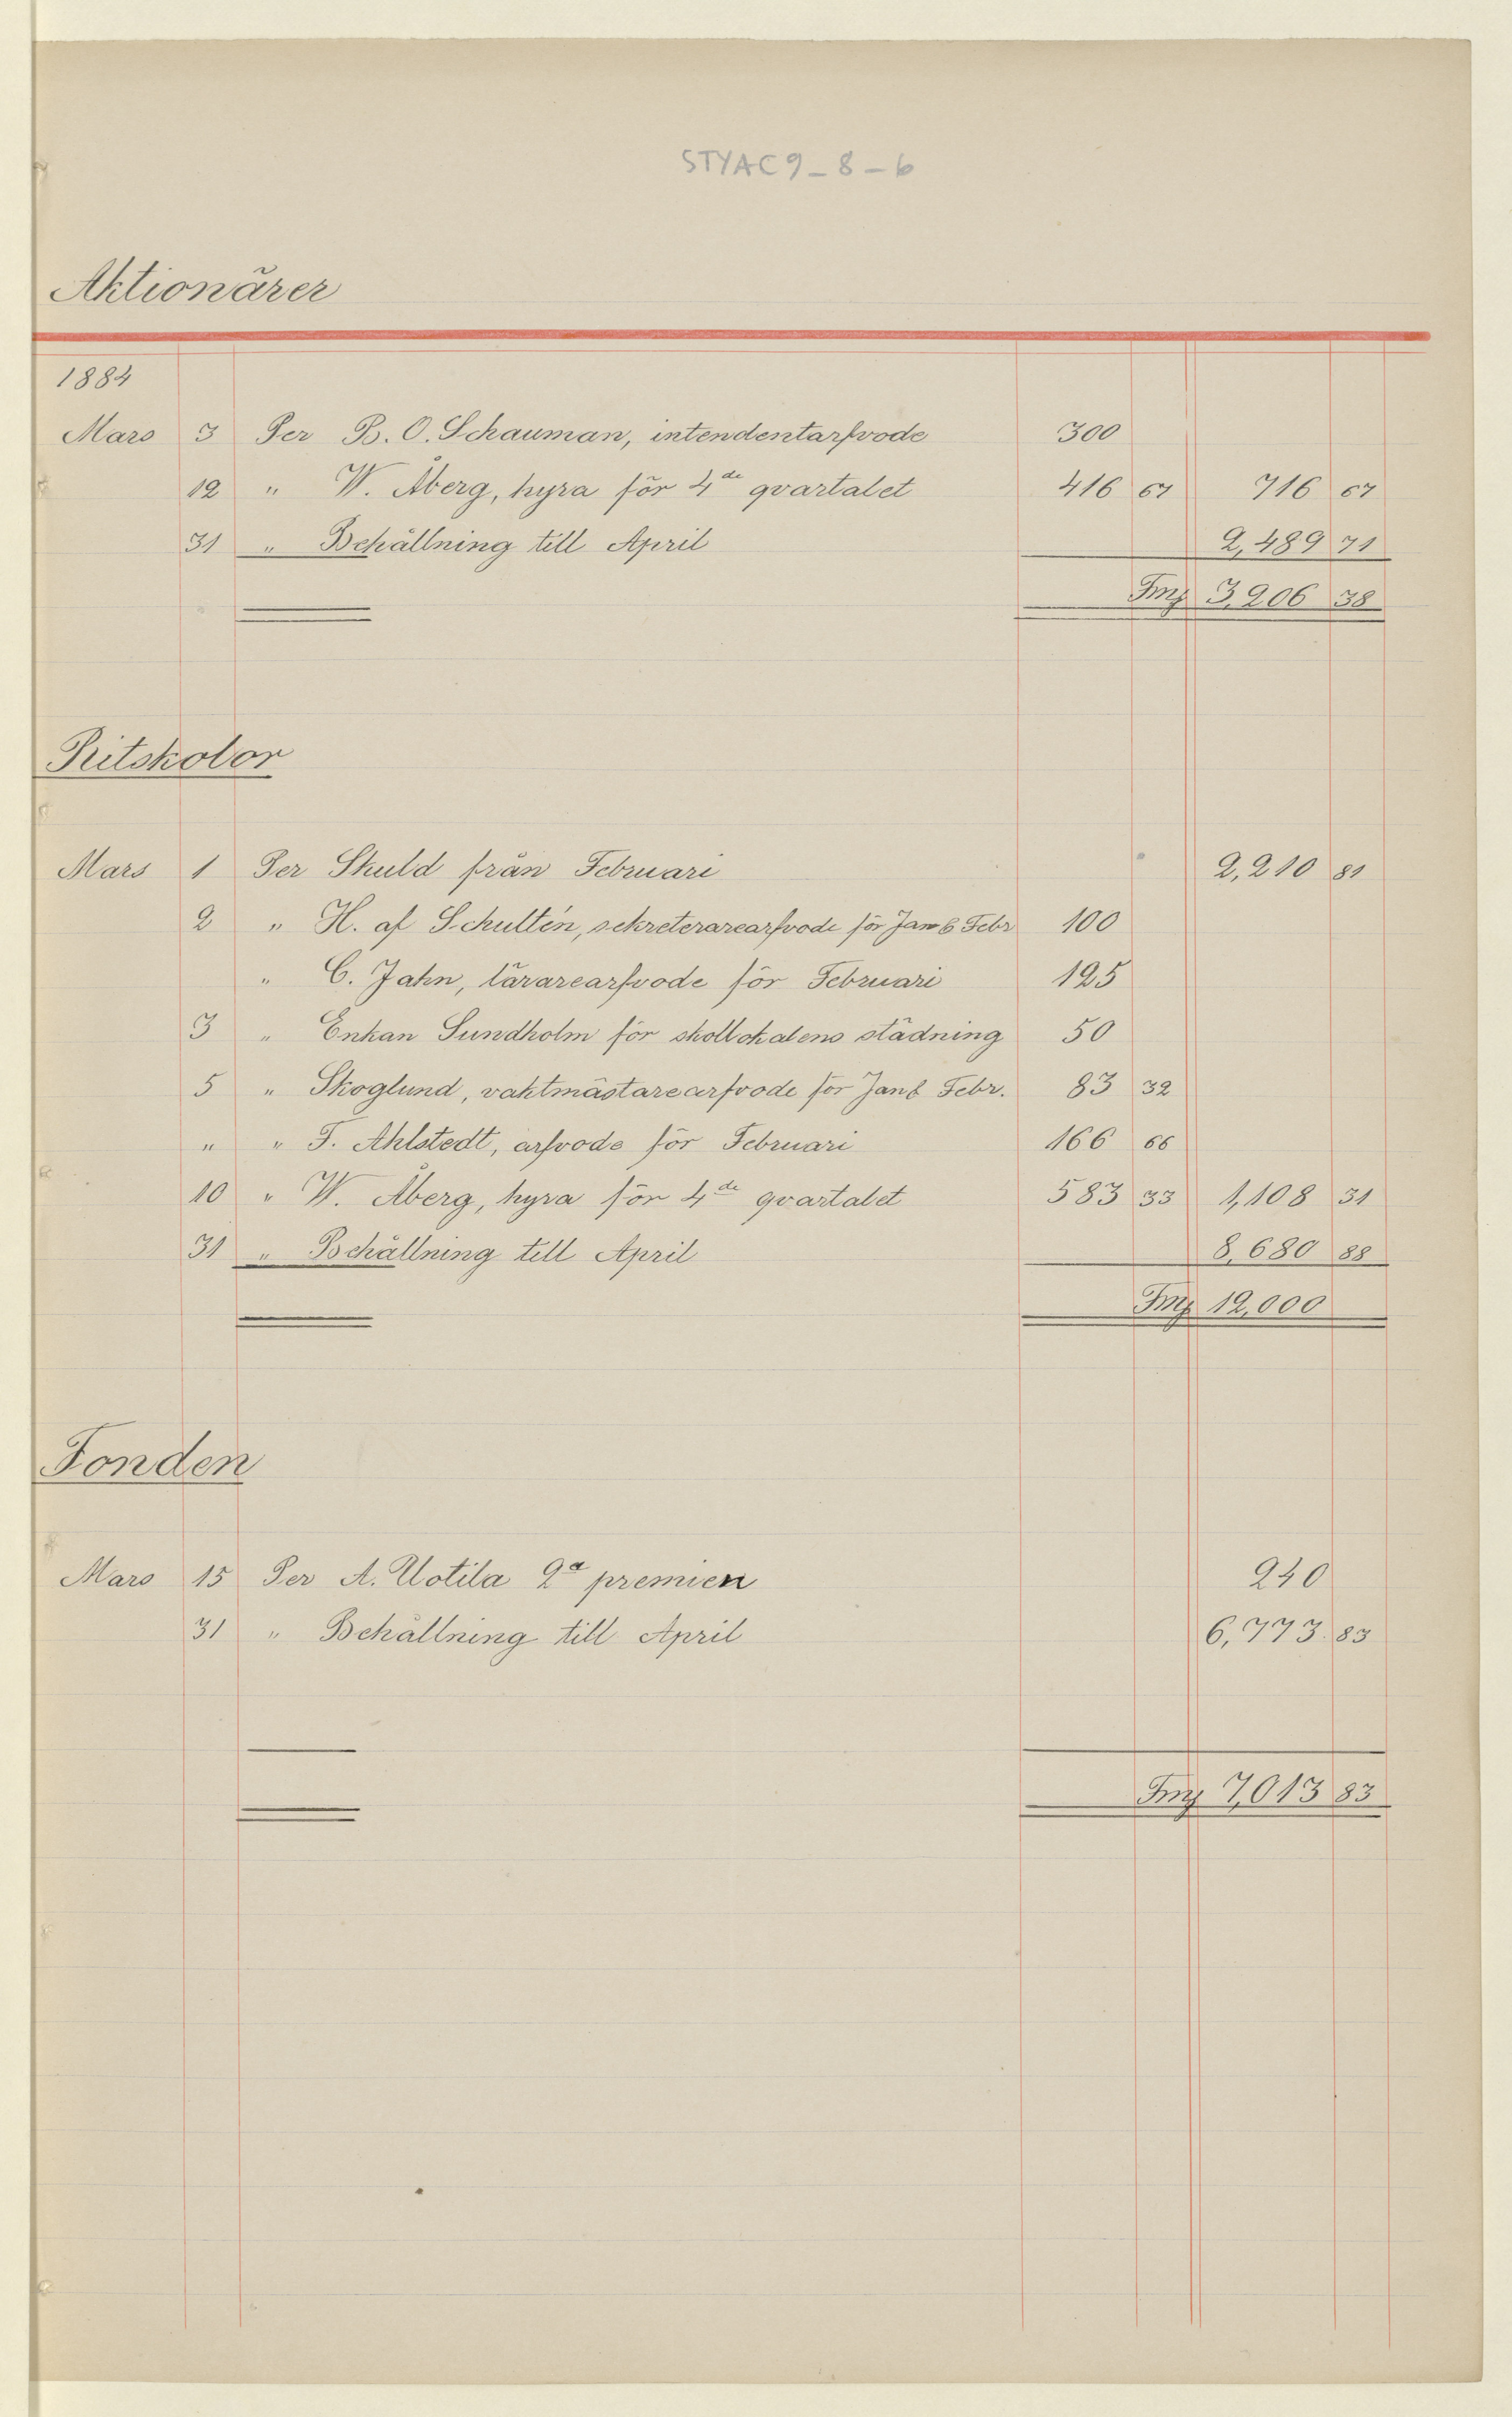 STYAC9-8-6
Aktionärer
1884
Mars 3 Per B. O. Schauman, intendentarfvode 300
12 " W. Åberg, hyra för 4de qvartalet 416 67 716 67
31 " Behållning till April 2,489 71
Fmk 3,206 38
Ritskolor
Mars 1 Per Skuld från Februari 2,210 81
2 " H. af Schultén, sekreterarearfvode för Jan & Febr 100
" C. Jahn, lärarearfvode för Februari 125
3 " Enkan Sundholm för skollokalens städning 50
5 " Skoglund, vaktmästarearfvode för Jan & Febr. 83 32
" " F. Ahlstedt, arfvode för Februari 166 66
10 " W. Åberg, hyra för 4de qvartalet 583 33 1,108 31
31 " Behållning till April 8,680 88
Fmk 12,000
Fonden
Mars 15 Per A. Uotila 2a premien 240
31 " Behållning till April 6,773 83
Fmk 7,013 83